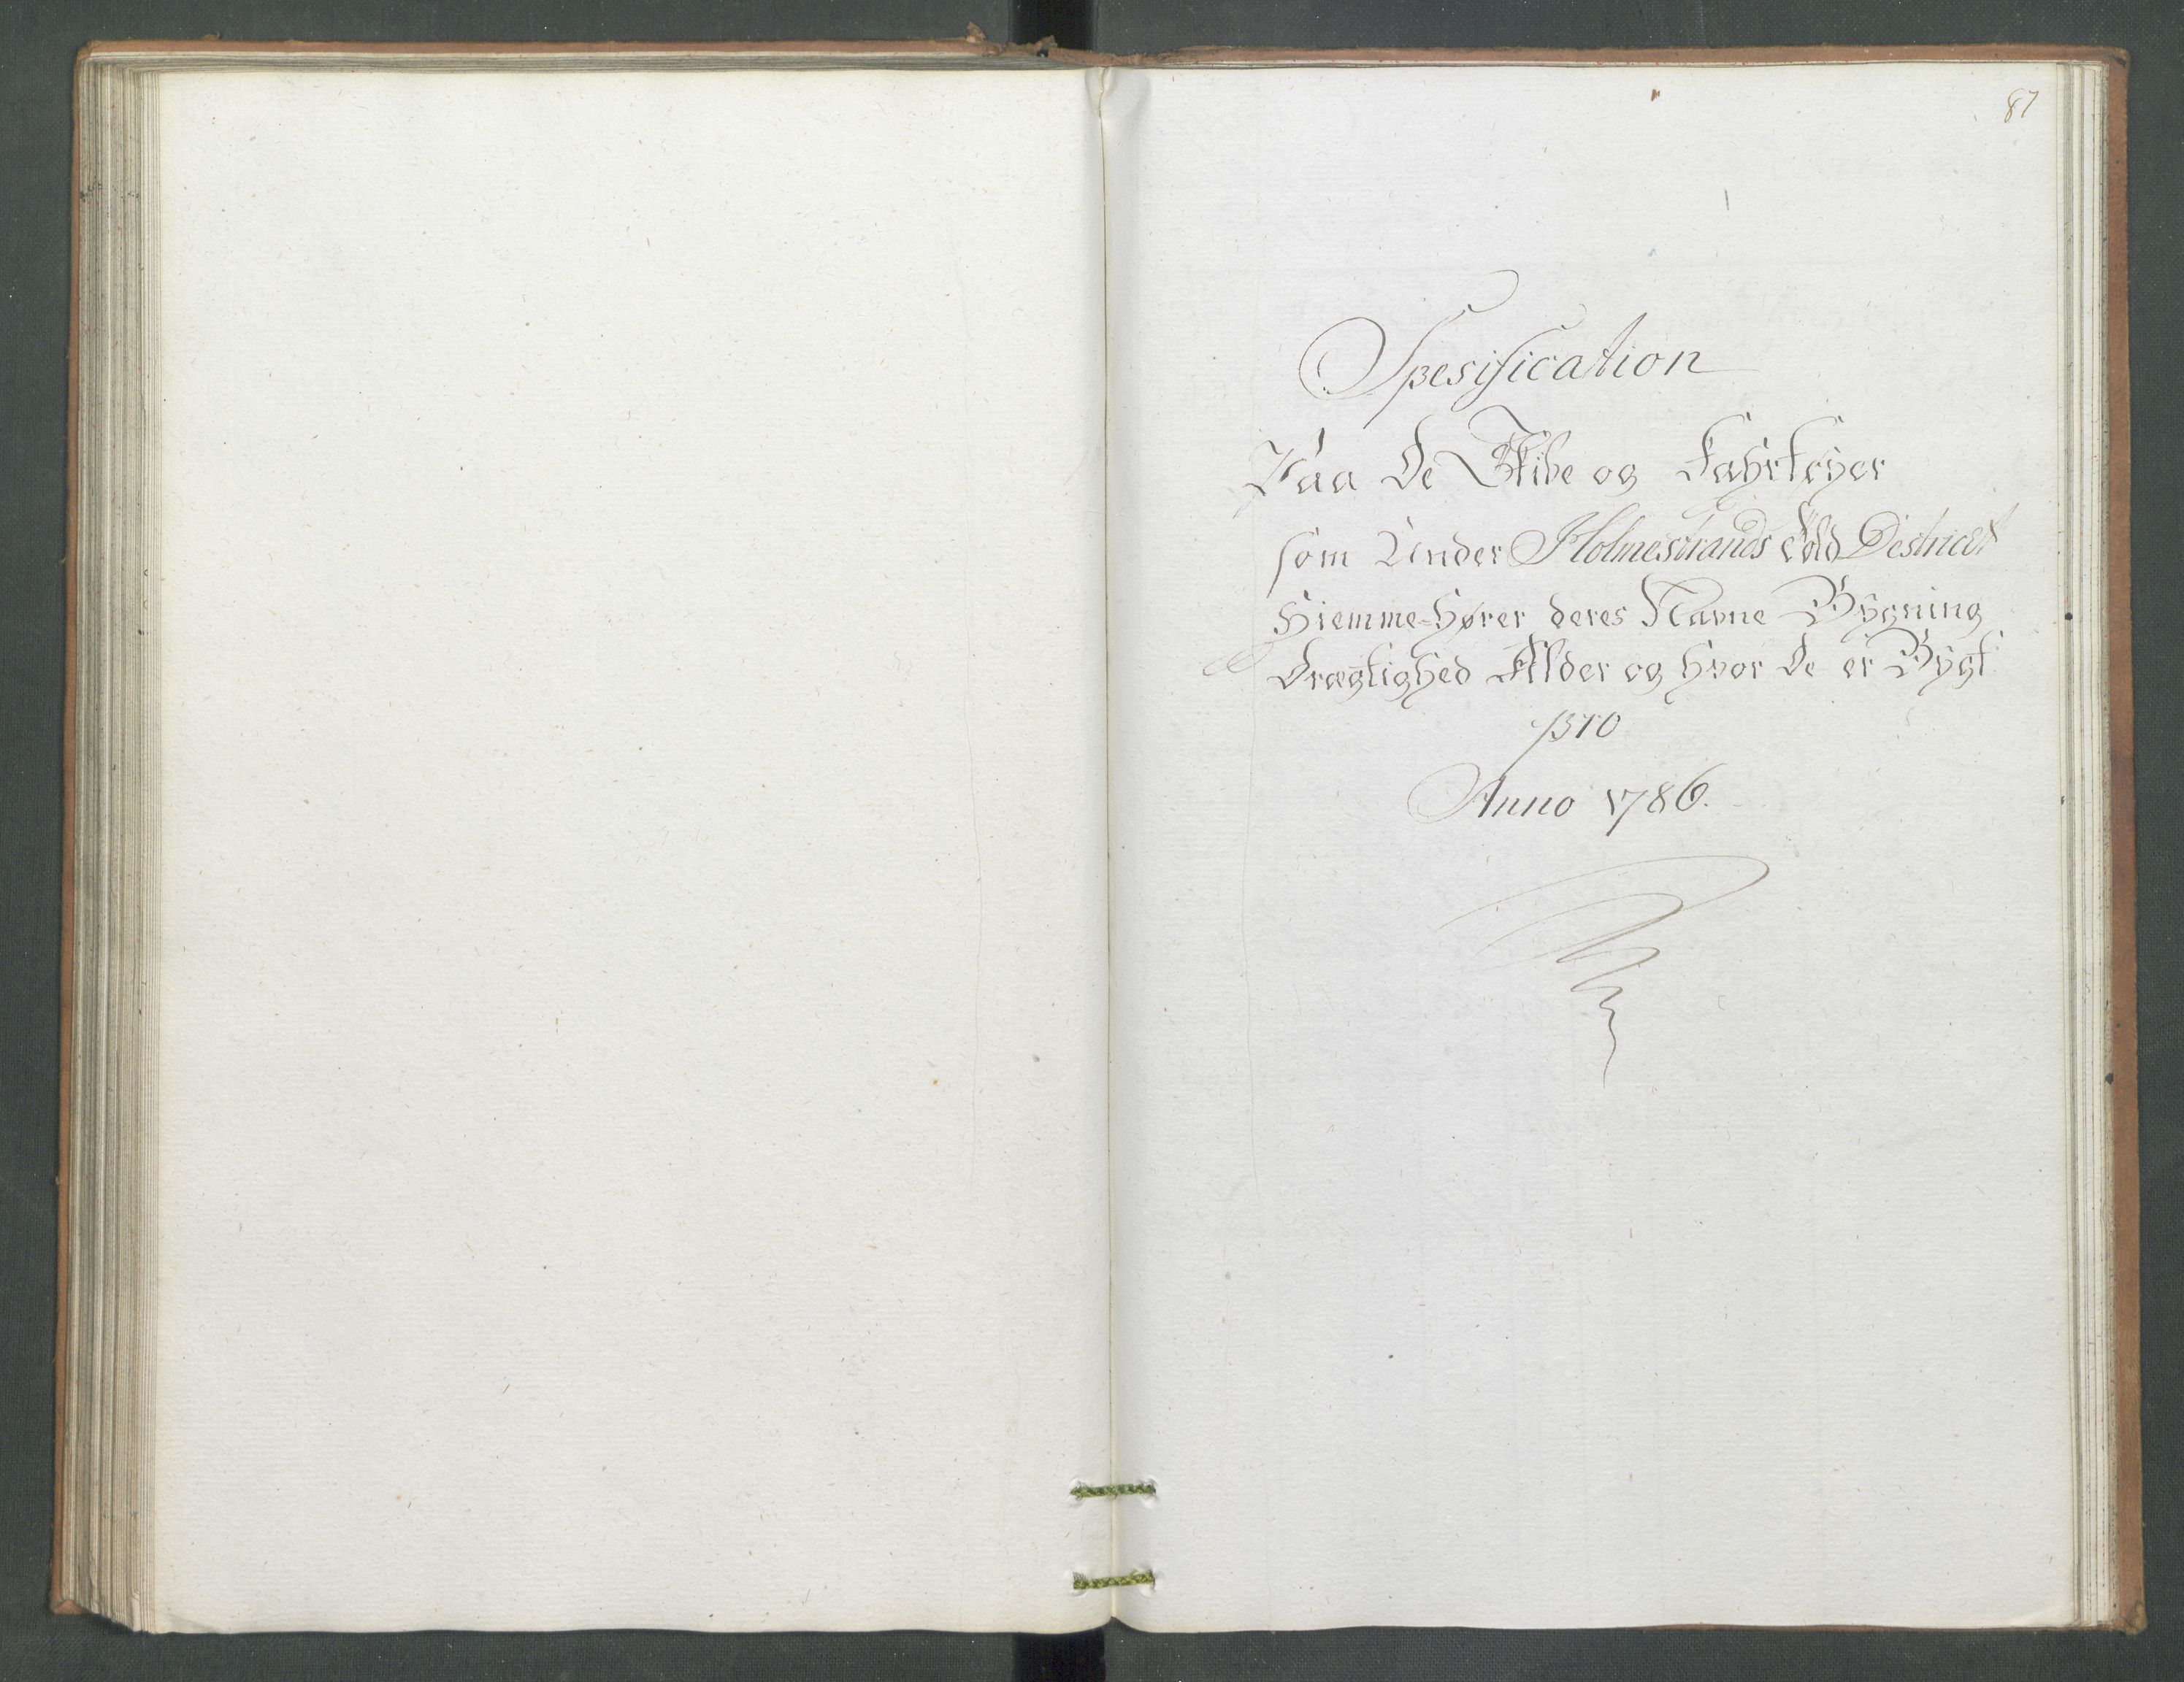 87
Spesification
Paa De Skibe og Fahrtøyer
som Under Holmestrands Told Destrict
Hiemme-hører deres Navne Bygning
Drægtighed Alder og hvor De er Bygt
pro
Anno 1786.